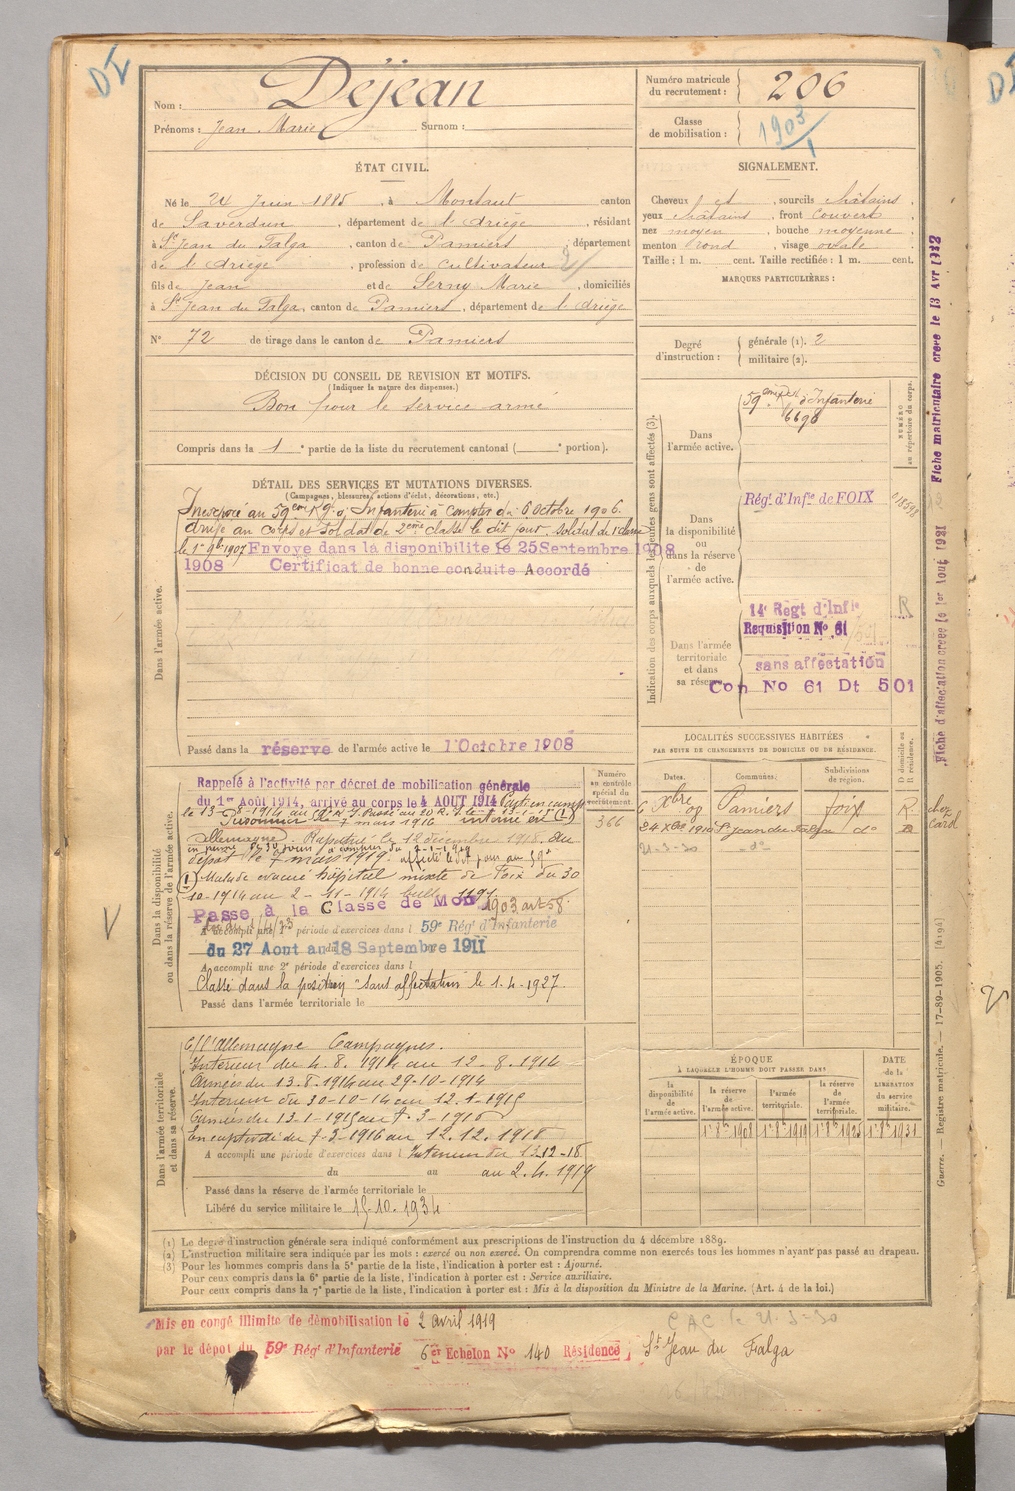 DI
Nom : Déjean
Prénoms : Jean Marie Surnom :
Numéro matricule du recrutement : 206
Classe de mobilisation : 1903/1
ÉTAT CIVIL.
Né le 24 Juin 1885, à Montaut canton
de Saverdun, département de l'Ariège, résidant
à St Jean du Falga, canton de Pamiers, département
de l'Ariège, profession de cultivateur
fils de Jean et de Serny Marie, domiciliés
à St Jean du Falga, canton de Pamiers, département de l'Ariège
N° 72 de tirage dans le canton de Pamiers
SIGNALEMENT.
Cheveux et, sourcils châtains,
yeux châtains, front couvert
nez moyen, bouche moyenne,
menton rond, visage ovale.
Taille : 1 m. cent. Taille rectifiée : 1 m. cent.
MARQUES PARTICULIÈRES :
Degré d'instruction : générale (1). 2
militaire (2).
DÉCISION DU CONSEIL DE REVISION ET MOTIFS.
(Indiquer la nature des dispenses.)
Bon pour le service armé
Compris dans la 1e partie de la liste du recrutement cantonal ( e portion).
DÉTAIL DES SERVICES ET MUTATIONS DIVERSES.
(Campagnes, blessures, actions d'éclat, décorations, etc.)
Dans l'armée active.
Incorporé au 59eme Rgt d'Infanterie à compter du 6 Octobre 1906.
Arrivé au corps et soldat de 2eme classe le dit jour. Soldat de 1e classe
le 1er 9bre 1907 Envoyé dans la disponibilité le 25 Septembre 1908
1908 Certificat de bonne conduite Accordé
Passé dans la réserve de l'armée active le 1 Octobre 1908
Indication des corps auxquels les jeunes gens sont affectés (3).
Dans l'armée active.
59eme Rgt d'Infanterie
6698
NUMÉRO au répertoire du corps.
Dans la disponibilité ou dans la réserve de l'armée active.
Régt d'Infie de FOIX
Dans l'armée territoriale et dans sa réserve.
14e Regt d'Infie
R
Requisition No 61
sans affectation
Con No 61 Dt 501
LOCALITÉS SUCCESSIVES HABITÉES
PAR SUITE DE CHANGEMENTS DE DOMICILE OU DE RÉSIDENCE.
Dates. Communes. Subdivisions de région. D domicile ou R résidence.
6 Xbre 09 Pamiers Foix R chez Carol
24 Xbre 1910 St Jean du Falga do D
21-3-30 do
Dans la disponibilité ou dans la réserve de l'armée active.
Numéro au contrôle spécial du recrutement.
366
Rappelé à l'activité par décret de mobilisation générale
du 1er Août 1914, arrivé au corps le 4 AOUT 1914
Prisonnier le 7 mars 1916 interné en
Allemagne. Rapatrié le 12 décembre 1918. au
dépôt le 7 mars 1919. affecté le dit jour au 59e
(1) Malade évacué hôpital mixte de Foix du 30
10-1914 au 2-11-1914 bulle 1197
Passé à la Classe de Mob 1903 art 58
A accompli une 1e période d'exercices dans l 59e Régt d'Infanterie
du 27 Aout au 18 Septembre 1911
A accompli une 2e période d'exercices dans l
Classé dans la position "sans affectation" le 1-4-1927.
Passé dans l'armée territoriale le
Dans l'armée territoriale et dans sa réserve.
C/ l'Allemagne Campagnes.
Intérieur du 4.8.1914 au 12-8-1914
Armées du 13.8.1914 au 29-10-1914
Intérieur du 30-10-14 au 12.1-1915
Armées du 13-1-1915 au 7-3-1916
En captivité du 7-3-1916 au 12.12.1918
A accompli une période d'exercices dans l Intérieur du 13.12-18
du au au 2.4.1919
Passé dans la réserve de l'armée territoriale le
Libéré du service militaire le 15-10-1934
ÉPOQUE
À LAQUELLE L'HOMME DOIT PASSER DANS
la disponibilité de l'armée active. la réserve de l'armée active. l'armée territoriale. la réserve de l'armée territoriale.
DATE de la LIBÉRATION du service militaire.
1er 8bre 1908 1er 8bre 1919 1er 8bre 1925 1er 8bre 1931
(1) Le degré d'instruction générale sera indiqué conformément aux prescriptions de l'instruction du 4 décembre 1889.
(2) L'instruction militaire sera indiquée par les mots : exercé ou non exercé. On comprendra comme non exercés tous les hommes n'ayant pas passé au drapeau.
(3) Pour les hommes compris dans la 5e partie de la liste, l'indication à porter est : Ajourné.
Pour ceux compris dans la 6e partie de la liste, l'indication à porter est : Service auxiliaire.
Pour ceux compris dans la 7e partie de la liste, l'indication à porter est : Mis à la disposition du Ministre de la Marine. (Art. 4 de la loi.)
Mis en congé illimité de démobilisation le 2 avril 1919
par le dépôt du 59e Régt d'Infanterie 6e Echelon No 140 Résidence St Jean du Falga
CAC le 21-3-30
Fiche d'affectation créée le 1er Août 1921 Fiche matriculaire créée le 13 Avr 1922
Guerre. Registre matricule. — 17-89-1905.
V